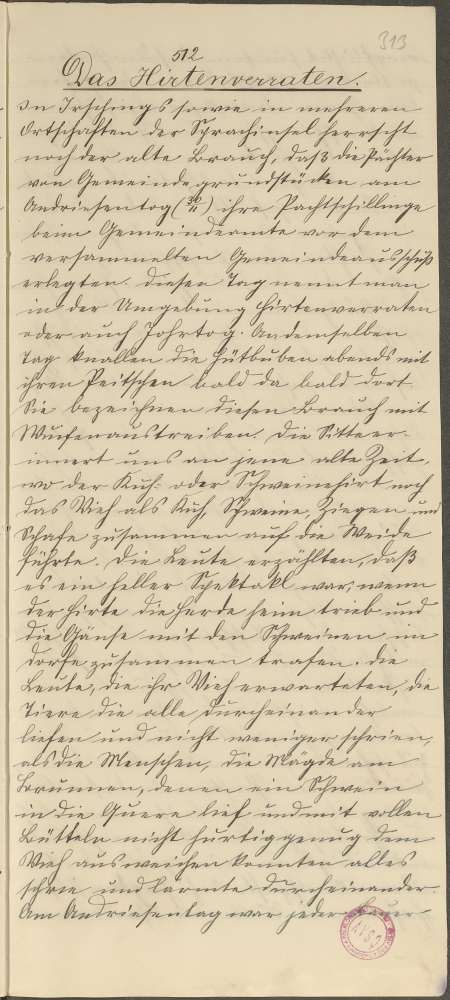 313
512
Das Hirtenverraten.
In Irschings sowie in mehreren
Ortschaften der Sprachinsel herrscht
noch der alte Brauch, daß die Pächter
von Gemeindegrundstücken am
Andriesentog (30/11) ihre Pachtschillinge
beim Gemeindeamte vor dem
versammelten Gemeindeausschuß
erlegten. Diesen Tag nennt man
in der Umgebung Hirtenverraten
oder auch Johrtog. An demselben
Tag knallen die Hütbuben abends mit
ihren Peitschen bald da bald dort.
Sie bezeichnen diesen Brauch mit
austreiben. Die Sitte er-
innert uns an jene alte Zeit,
wo der Kuh- oder Schweinehirt noch
das Vieh als Kuh, Schweine, Ziegen und
Schafe zusammen auf die Weide
führte. Die Leute erzählten, daß
es ein heller Spektakl war, wenn
der Hirte die Herde heim trieb und
die Gänse mit den Schweinen im
Dorfe zusammen trafen. Die
Leute, die ihr Vieh erwarteten, die
Tiere die alle durcheinander
liefen und nicht weniger schrien,
als die Menschen, die Mägde am
Brunnen, denen ein Schwein
in die Quere lief und mit vollen
Bütteln nicht hurtig genug dem
Vieh ausweichen konnten alles
schrie und lärmte durcheinander.
Am Andriesentag war jeder Bauer